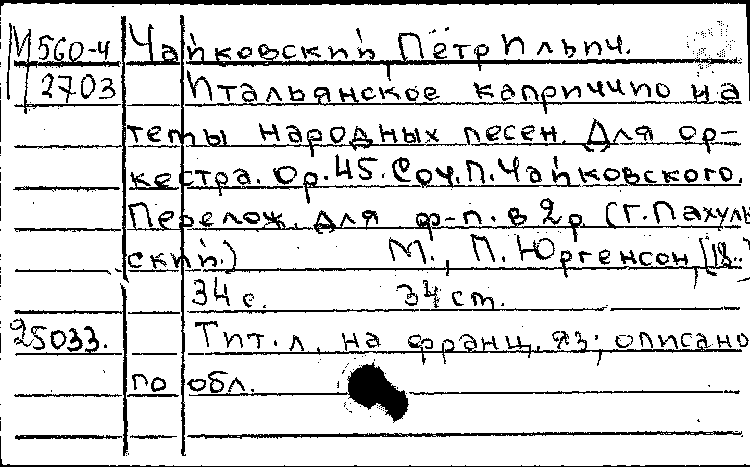 М560-4 Чайковский Пётр Ильич.
2703 Итальянское каприччио на
темы народных песен. Для ор-
кестра. Ор.45. Соч. П. Чайковского.
Перелож. для ф-п. в 2р (Г. Пахуль
ский.) М., П. Юргенсон, [18..]
34 с. 34 ст.
25033. Тит. л. на франц. яз; описано
по обл.